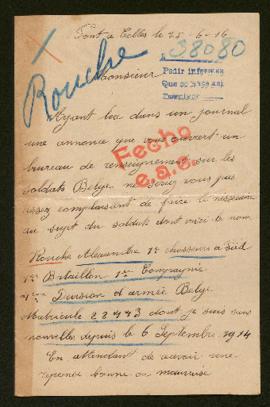 Pont à Celles le 25-6-16
38080
Rouche
Monsieur
Pedir informes
Que se hace así
Ayant lu dans un journal
une annonce que vous ouvert un
bureau de renseignement sur les
soldats Belge ne seriez vous pas
assez complaisant de faire le nécessaire
au sujet du soldats dont voici le nom
Fecho
e.a.s.
Rouche Alexandre 1er chasseurs à pied
1er Bataillon 1re Compagnie
Division d armée Belge
Matricule 22443 dont je suis sans
nouvelles depuis le 6 Septembre 1914
En attendant de avoir une
reponse bonne ou mauvaise